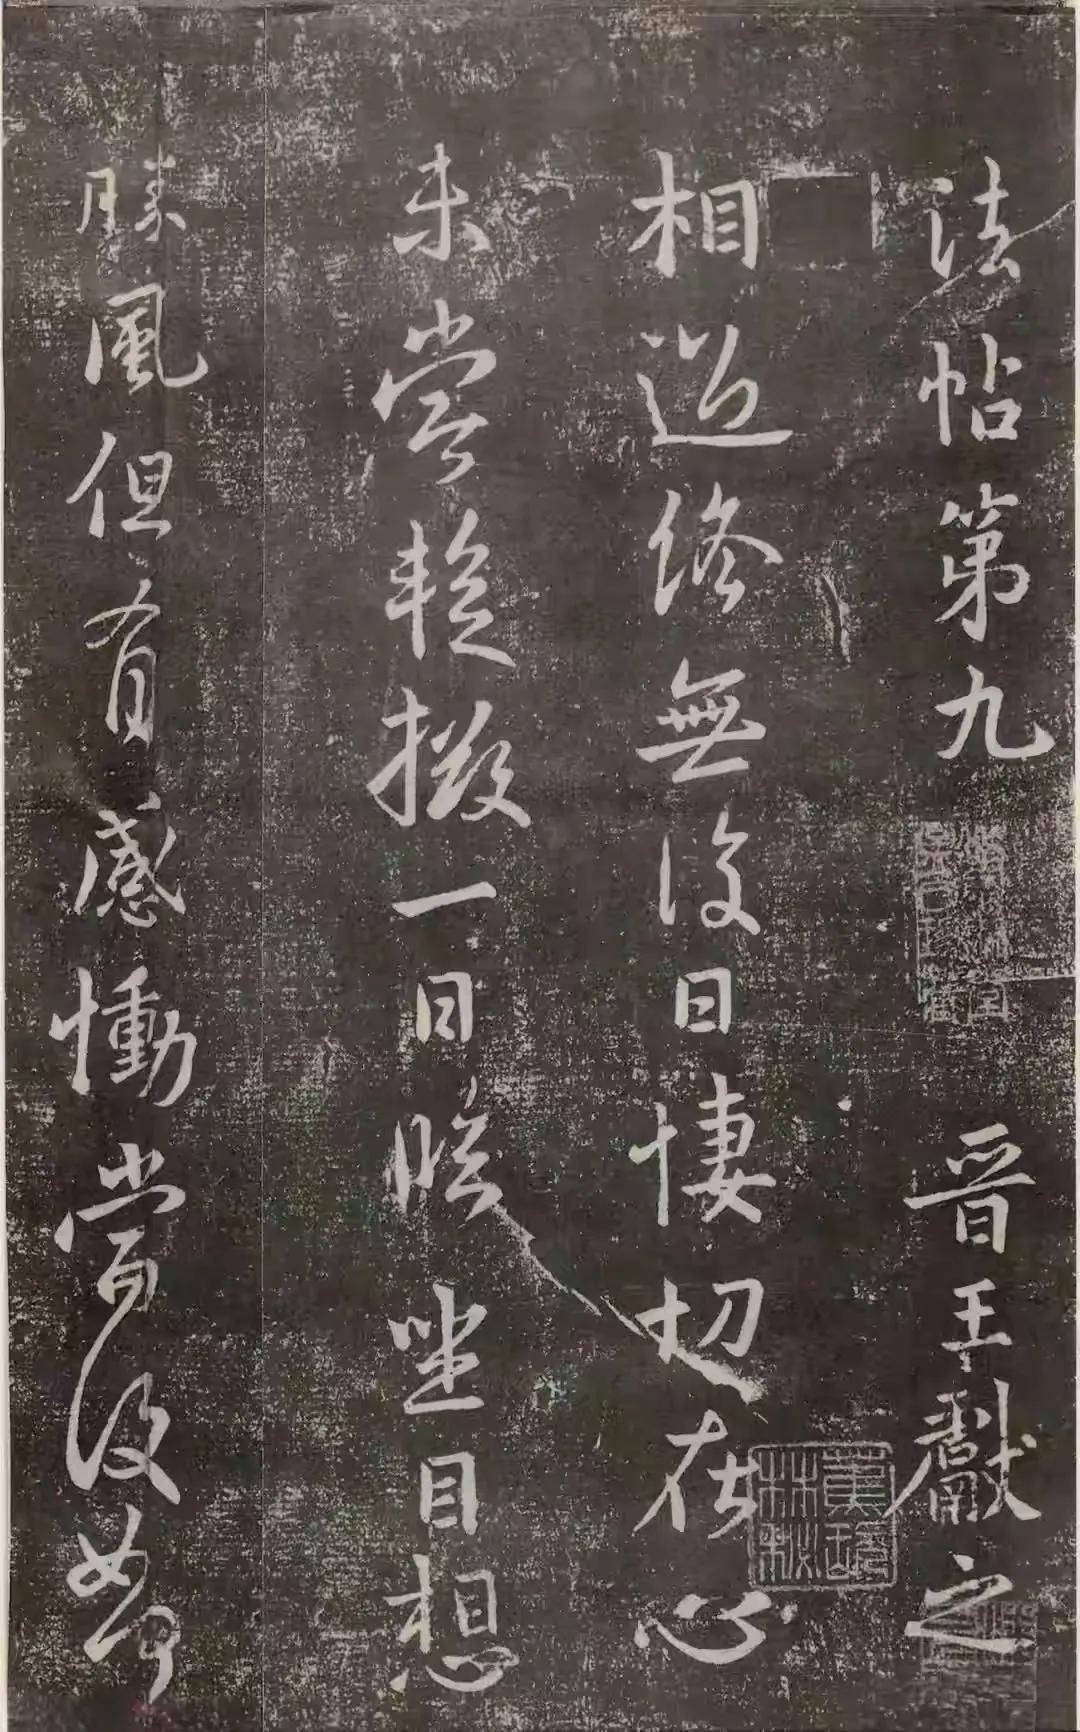 法帖第九 晋王獻之
相過終無復日悽切在心
未嘗暫掇一日臨坐目想
勝風但有感慟當復如何